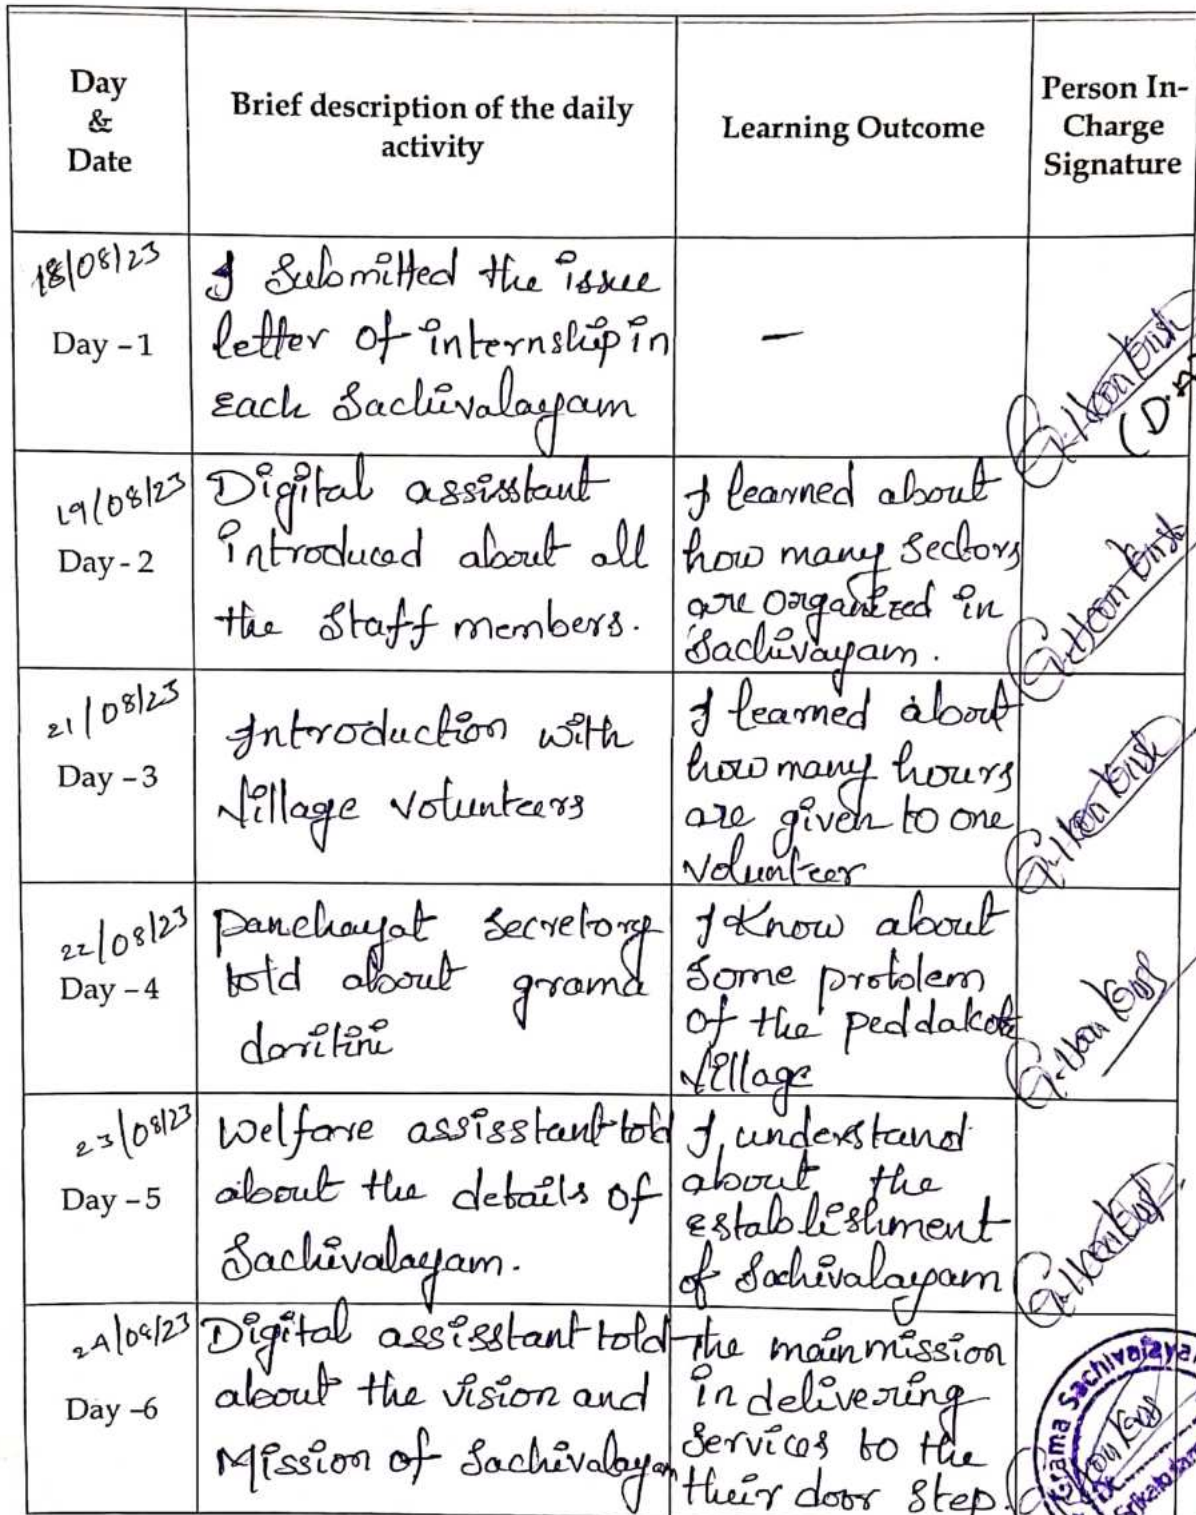 Day
&
Date
Brief description of the daily
activity
Learning Outcome
Person In-
Charge
Signature
18/08/23
Day - 1
I Submitted the issue
letter of internship in
Each Sachivalayam
-
(D.A
19/08/23
Day - 2
Digital assisstant
introduced about all
the Staff members.
I learned about
how many Sectors
are organized in
Sachivayam.
21/08/23
Day - 3
Introduction with
Village volunteers
I learned about
how many hours
are given to one
volunteer
22/08/23
Day - 4
Panchayat Secretory
told about grama
I Know about
Some problem
of the peddakota
Village
23/08/23
Day - 5
Welfare assisstant told
about the details of
Sachivalayam.
I understand
about the
establishment
of Sachivalayam
24/08/23
Day -6
Digital assisstant told
about the vision and
Mission of Sachivalayam
The main mission
in delivering
Services to the
their door Step.
Grama Sachivalayam